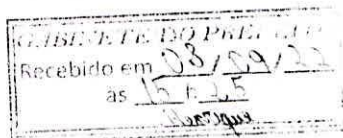 GABINETE DO PREFEITO
Recebido em 08/09/22
às 15 h 25